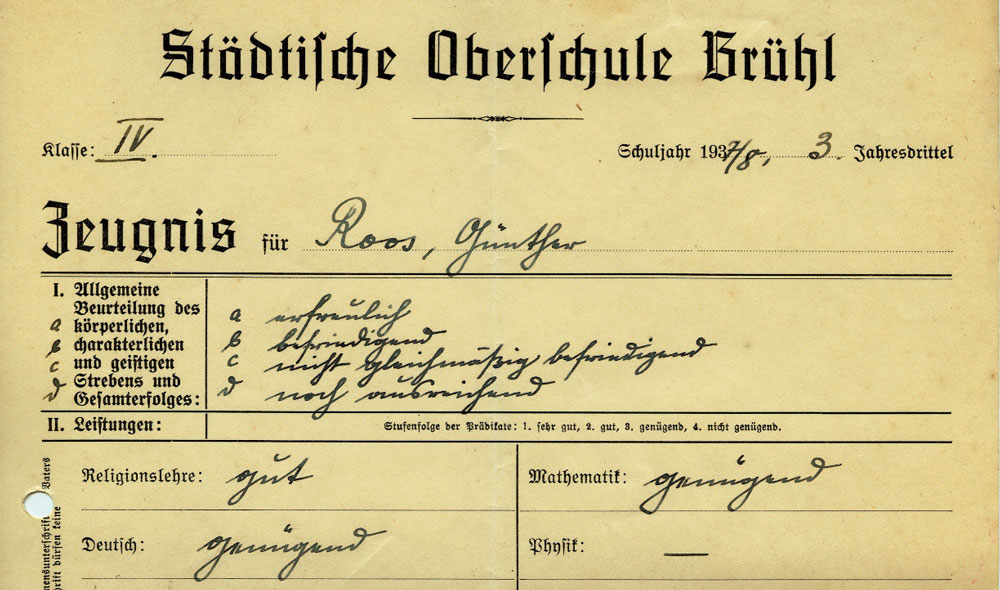 Städtische Oberschule Brühl
Klasse: IV.
Schuljahr 1937/8, 3. Jahresdrittel
Zeugnis für Roos, Günther
I. Allgemeine
Beurteilung des
a körperlichen,
b charakterlichen
c und geistigen
d Strebens und
Gesamterfolges:
a erfreulich
b befriedigend
c nicht gleichmäßig befriedigend
d noch ausreichend
II. Leistungen:
Stufenfolge der Prädikate: 1. sehr gut, 2. gut, 3. genügend, 4. nicht genügend.
Religionslehre: gut
Mathematik: genügend
Deutsch: genügend
Physik: —
Vaters
mensunterschrift
rift dürfen keine